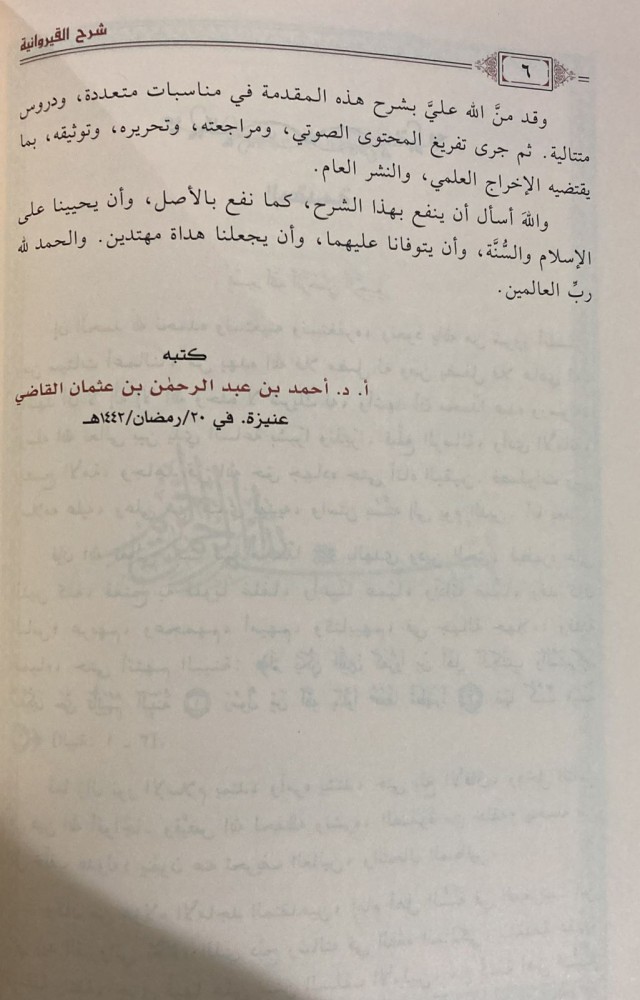 شرح القيروانية
٦
وقد منَّ الله عليَّ بشرح هذه المقدمة في مناسبات متعددة، ودروس
متتالية. ثم جرى تفريغ المحتوى الصوتي، ومراجعته، وتحريره، وتوثيقه، بما
يقتضيه الإخراج العلمي، والنشر العام.
واللهَ أسأل أن ينفع بهذا الشرح، كما نفع بالأصل، وأن يحيينا على
الإسلام والسُّنَّة، وأن يتوفانا عليهما، وأن يجعلنا هداة مهتدين. والحمد لله
ربِّ العالمين.
كتبه
أ. د. أحمد بن عبد الرحمٰن بن عثمان القاضي
عنيزة. في ٢٠/رمضان/١٤٤٢هـ